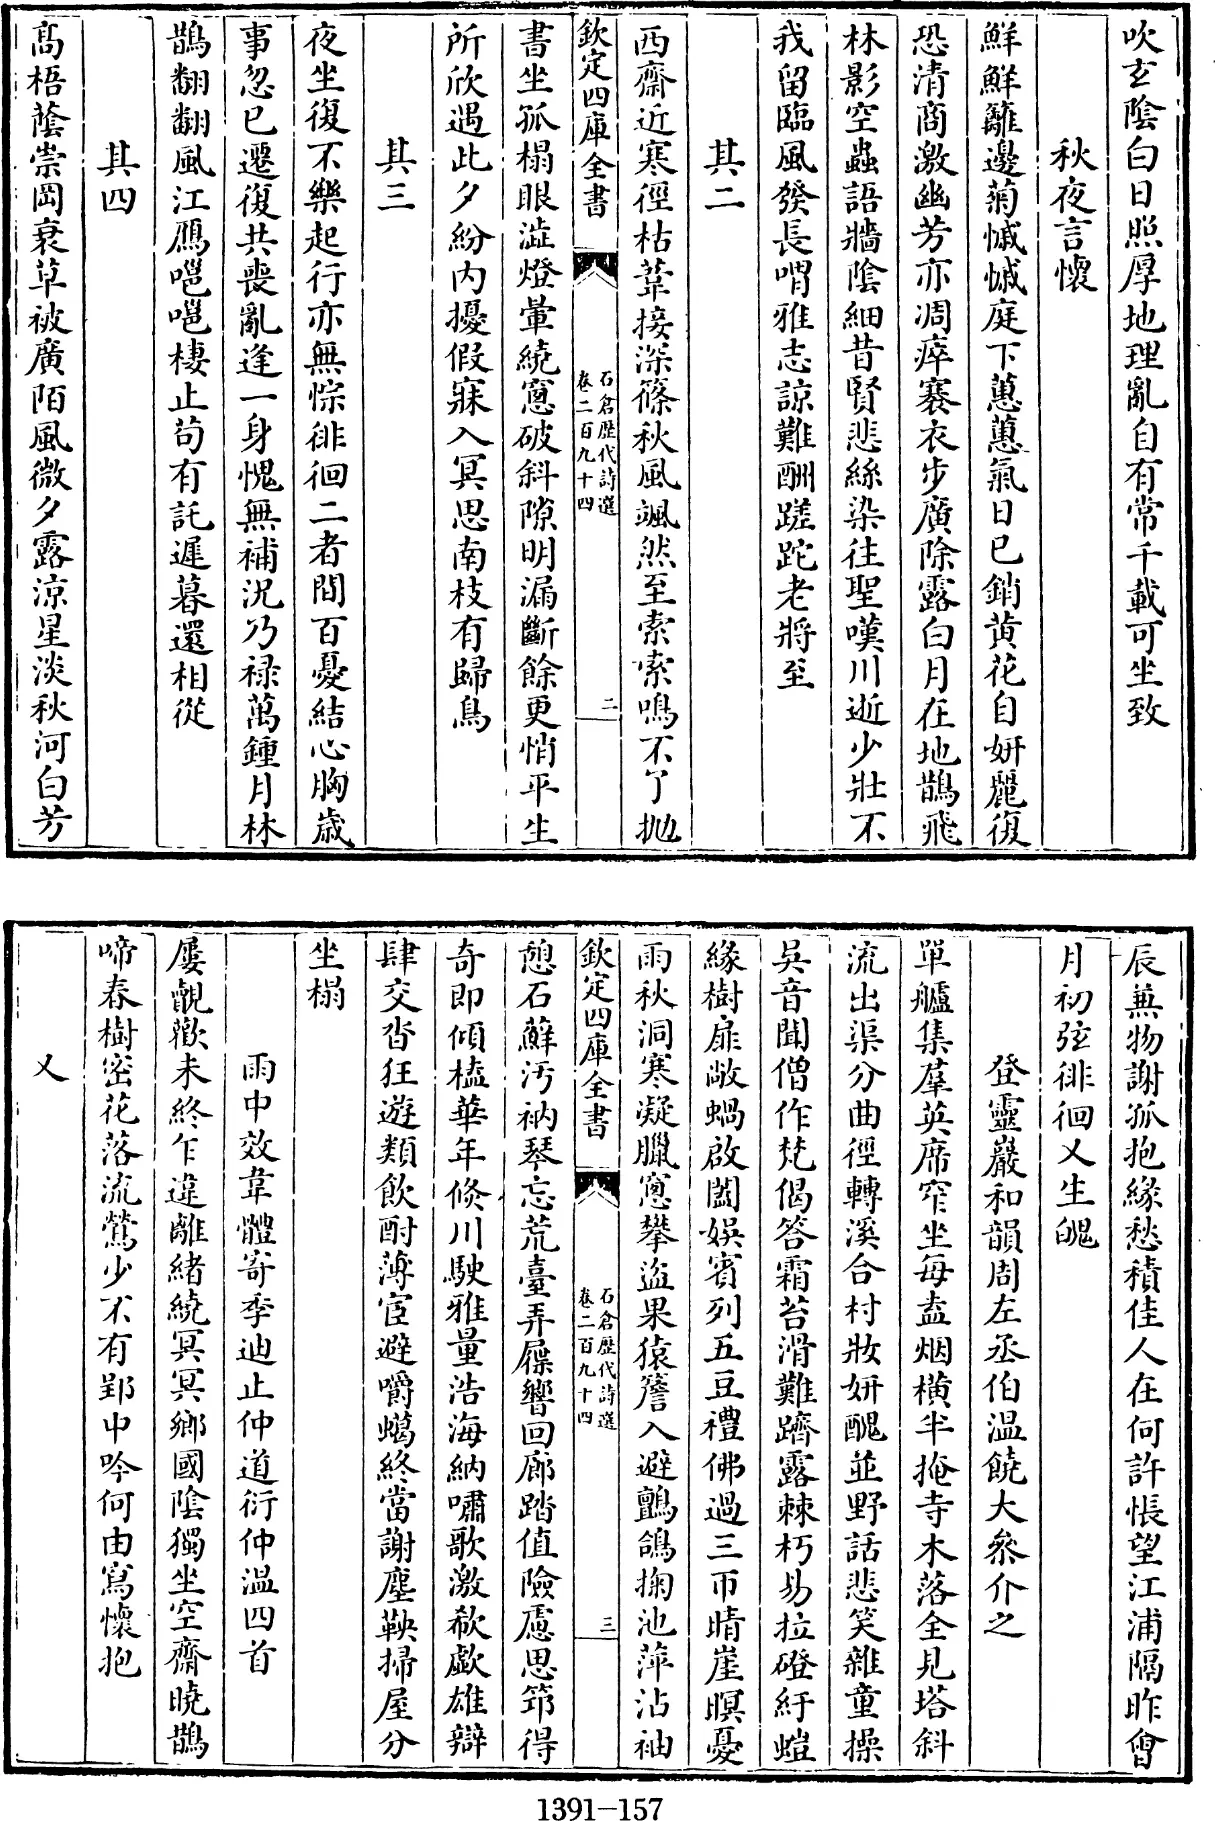 吹玄陰白日照厚地理亂自有常千載可坐致
秋夜言懷
鮮鮮籬邊菊慽慽庭下蕙蕙氣日已銷黄花自妍麗復
恐清商激幽芳亦凋瘁褰衣步廣除露白月在地鵲飛
林影空蟲語牆陰細昔賢悲絲染往聖嘆川逝少壯不
我留臨風發長喟雅志諒難酬蹉跎老將至
其二
西齋近寒徑枯葦接深篠秋風颯然至索索鳴不了拋
欽定四庫全書
石倉歷代詩選
卷二百九十四
二
書坐孤榻眼澁燈暈繞窻破斜隙明漏斷餘更悄平生
所欣遇此夕紛内擾假寐入冥思南枝有歸鳥
其三
夜坐復不樂起行亦無悰徘徊二者間百憂結心胸歳
事忽已遷復共喪亂逢一身愧無補況乃禄萬鍾月林
鵲翻翻風江鴈嗈嗈棲止茍有託遲暮還相從
其四
髙梧蔭崇岡衰草被廣陌風微夕露凉星淡秋河白芳
辰無物謝孤抱緣愁積佳人在何許悵望江浦隔昨㑹
月初弦徘徊又生魄
登靈巖和韻周左丞伯温饒大叅介之
單艫集羣英席窄坐毎盍烟横半掩寺木落全見塔斜
流出渠分曲徑轉溪合村妝妍醜並野話悲笑雜童操
吳音聞僧作梵偈答霜苔滑難躋露棘朽易拉磴紆螘
緣樹扉敞蝸啟闔娱賔列五豆禮佛過三帀晴崖暝憂
雨秋洞寒凝臘窻攀盜果猿簷入避鸇鴿掬池萍沾袖
欽定四庫全書
石倉歷代詩選
卷二百九十四
三
憩石蘚汚衲琴忘荒臺弄屧響回廊踏值險慮思筇得
奇即傾榼華年倐川駛雅量浩海納嘯歌激欷歔雄辯
肆交沓狂遊類飲酎薄宦避嚼蠟終當謝塵鞅掃屋分
坐榻
雨中效韋體寄季迪止仲道衍仲温四首
屢覿歡未終乍違離緒繞冥冥鄉國陰獨坐空齋曉鵲
啼春樹密花落流鶯少不有郢中吟何由寫懷抱
又
1391-157